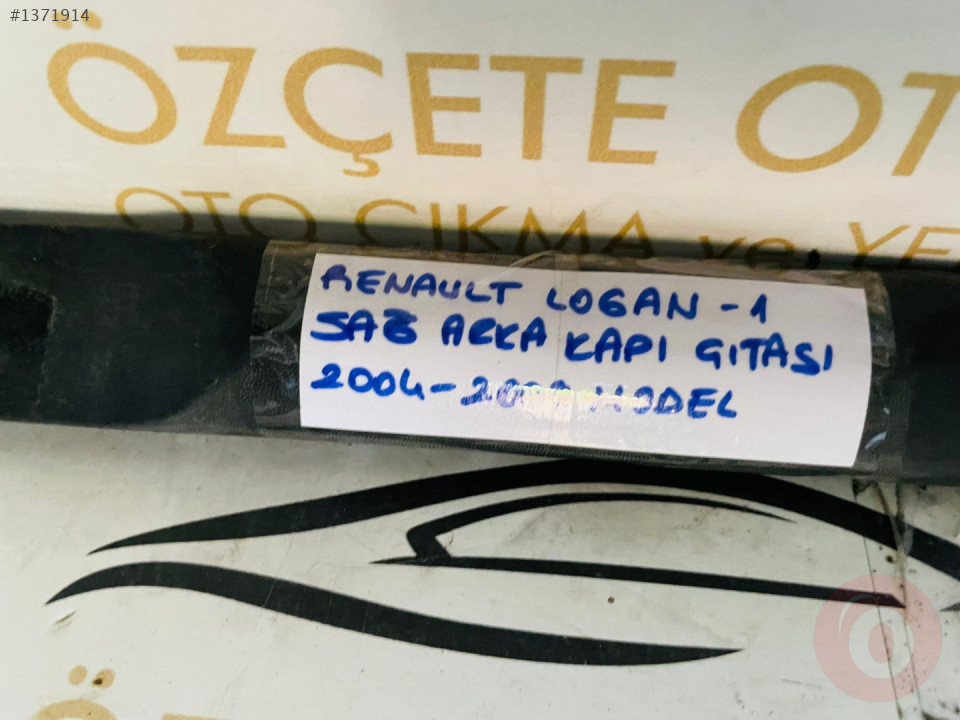 #1371914
ÖZÇETE OT
OTO ÇIKMA ve YE
RENAULT LOGAN-1
SAĞ ARKA KAPI GITASI
2004- MODEL
Ö